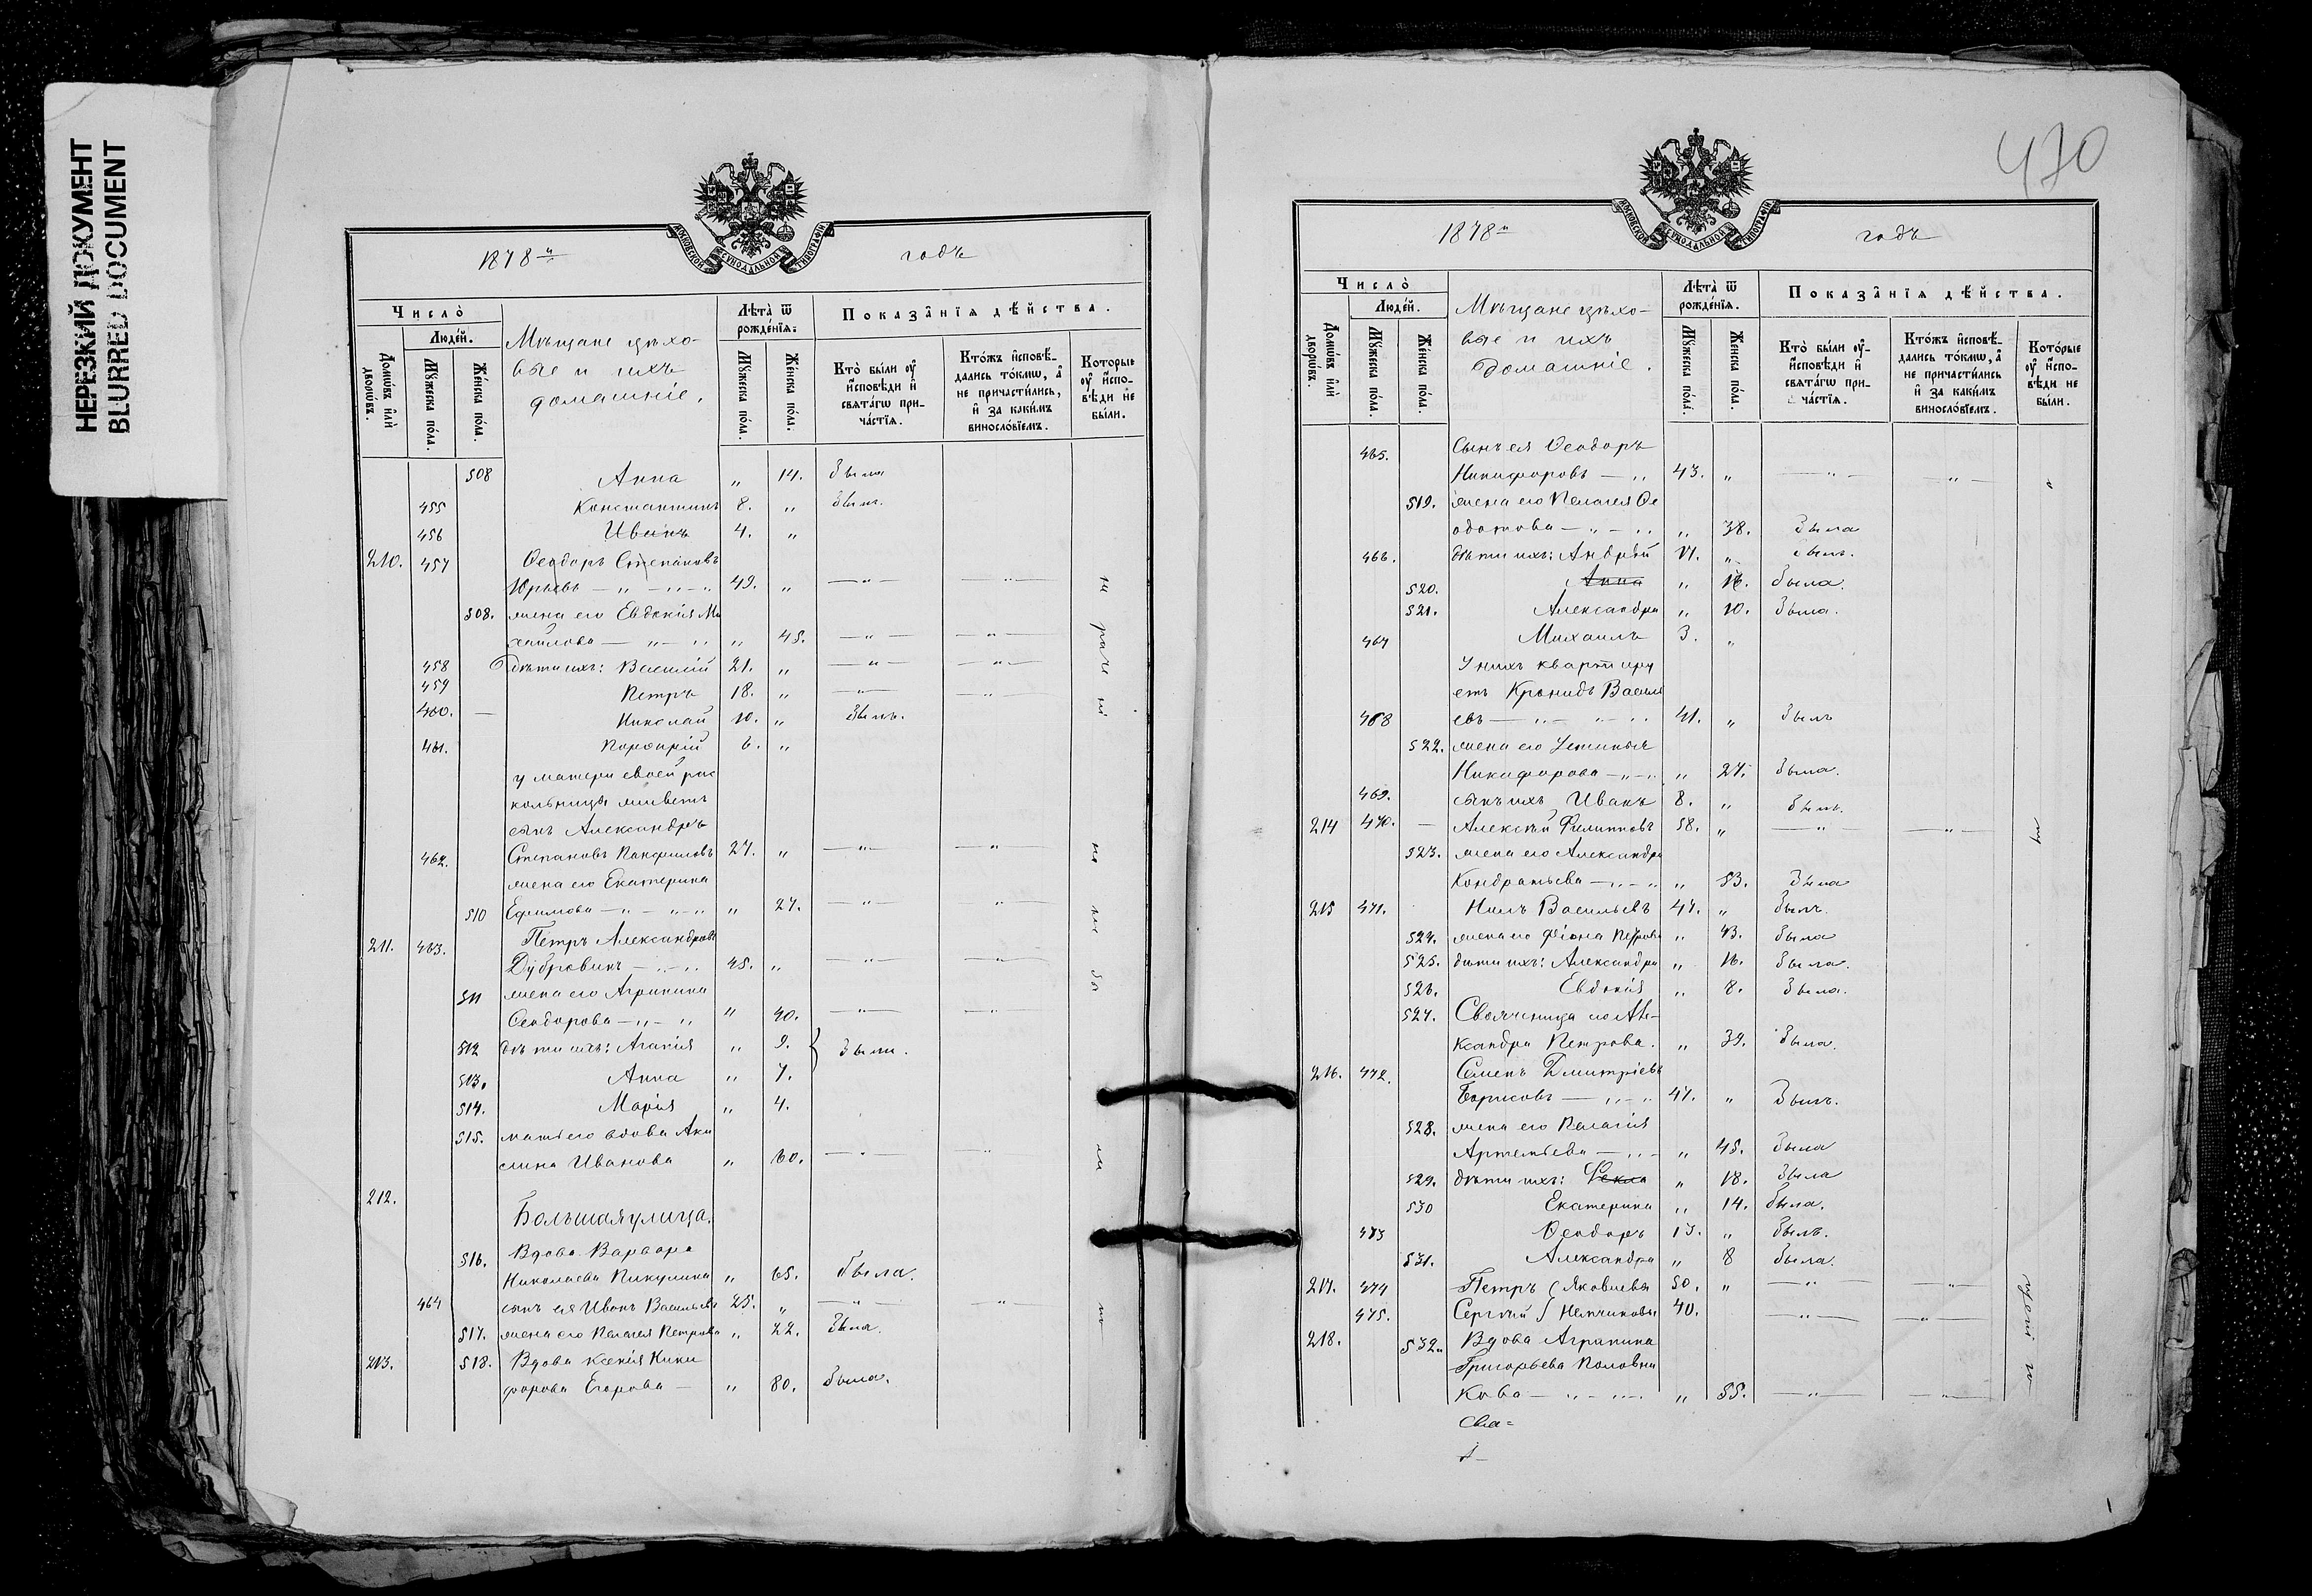 НЕРЕЗКИЙ ДОКУМЕНТ
BLURRED DOCUMENT
МОСКОВСКОЙ СѴНОДАЛЬНОЙ ТИПОГРАФІИ
1878й годъ
Число̀
Людей.
Домѡвъ и҆лѝ дворѡвъ.
Мꙋжеска по́ла.
Же́нска по́ла.
Мѣщане цѣхо-
вые и ихъ
домашніе.
Лѣта̀ ѿ рожде́нїѧ.
Мꙋжеска по́ла.
Же́нска по́ла.
Показа̑нїѧ дѣ́йства.
Кто̀ бы́ли ᲂу҆
и҆сповѣди и҆
свѧта́гѡ при-
ча́стїѧ.
Кто́жъ и҆сповѣ-
дались то́кмѡ, а҆
не причасти́лись,
и҆ за каки́мъ
винословїемъ.
Кото́рые
ᲂу҆ и҆спо-
вѣди не
бы́ли.
508 Анна „ 14. Была
455 Константинъ 8. „ Былъ.
456 Иванъ 4. „
210. 457 Ѳеодоръ Степановъ
Юрьевъ — „ — „ 49. „ — „ — „ —
508. жена его Евдокія Ми
хайлова — „ — „ „ 45. — „ — — „ —
458 дѣти ихъ: Василій 21. „ — „ — — „ —
459 Петръ 18. „ — „ — — „ —
460. — Николай 10. „ Былъ.
461. Порфирій 6. „
у матери своей рас
кольницы живетъ
сынъ Александръ
462. Степановъ Панфиловъ 27. „ — „ — — „ —
жена его Екатерина
510 Ефимова — „ — „ „ „ 27. — „ — — „ —
211. 463. Петръ Александровъ
Дубровинъ — „ — „ 45. „ — „ — — „ —
511 жена его Агрипина
Ѳеодорова — „ — „ „ 40. — „ — — „ —
512 дѣти ихъ: Агапія „ 9. } Были.
513. Анна „ 7.
514. Марія „ 4.
515. мать его вдова Аки
лина Иванова „ 60. — „ — — „ —
212.
Большая улица.
516. Вдова Варвара
Николаева Пикулина „ 65. была.
464 сынъ ея Иванъ Васильевъ 25. „ — „ — — „ —
517. жена его Пелагея Петрова „ 22. Была.
213. 518. Вдова Ксенія Ники
форова Егорова — „ 80. была.
470
МОСКОВСКОЙ СѴНОДАЛЬНОЙ ТИПОГРАФІИ
1878й годъ
Число̀
Людей.
Домѡвъ и҆лѝ дворѡвъ.
Мꙋжеска по́ла.
Же́нска по́ла.
Мѣщане цѣхо-
вые и ихъ
домашніе.
Лѣта̀ ѿ рожде́нїѧ.
Мꙋжеска по́ла.
Же́нска по́ла.
Показа̑нїѧ дѣ́йства.
Кто̀ бы́ли ᲂу҆
и҆сповѣди и҆
свѧта́гѡ при-
ча́стїѧ.
Кто́жъ и҆сповѣ-
дались то́кмѡ, а҆
не причасти́лись
и҆ за каки́мъ
винословїемъ.
Кото́рые
ᲂу҆ и҆спо-
вѣди не
бы́ли.
465. Сынъ ея Ѳеодоръ
Никифоровъ — „ 43. „ — „ — — „ —
519. жена его Пелагея Ѳе
одотова — „ — „ „ 38. Была
466. дѣти ихъ: Андрей 17. „ былъ.
520. Анна „ 16. была.
521. Александра „ 10. Была.
467 Михаилъ 3. „
У нихъ квартиру
етъ Кронидъ Василь
468 евъ — „ — „ — „ 41. „ Былъ
522. жена его Устинья
Никифорова — „ — „ „ 27. Была.
469. сынъ ихъ Иванъ 8. „ Былъ.
214 470. — Алексѣй Филипповъ 58. „ — „ — — „ —
523. жена его Александра
Кондратьева — „ — „ „ 53. Была
215 471. Нилъ Васильевъ 47. „ былъ.
524. жена его Ѳіона Петрова „ 43. была
525. дѣти ихъ: Александра „ 16. была.
526. Евдокія „ 8. Была.
527. Свояченица его Але-
ксандра Петрова. „ 39. Была.
216. 472. Семенъ Дмитріевъ
Борисовъ — „ — „ 47. „ Былъ.
528. жена его Пелагія
Артемьева — „ — „ 45. была
529. дѣти ихъ: Ѳекла „ 18. Была
530 Екатерина „ 14. была.
473 Ѳеодоръ 13. „ былъ.
531. Александра „ 8 была.
217. 474 Петръ ( Яковлевы 50. „ — „ — — „ —
475. Сергѣй ) Немчиновы 40. — „ — — „ —
218. 532. Вдова Агрипина
Григорьева Половни
кова — „ — „ — „ 55. — „ — — „ —
Свя=